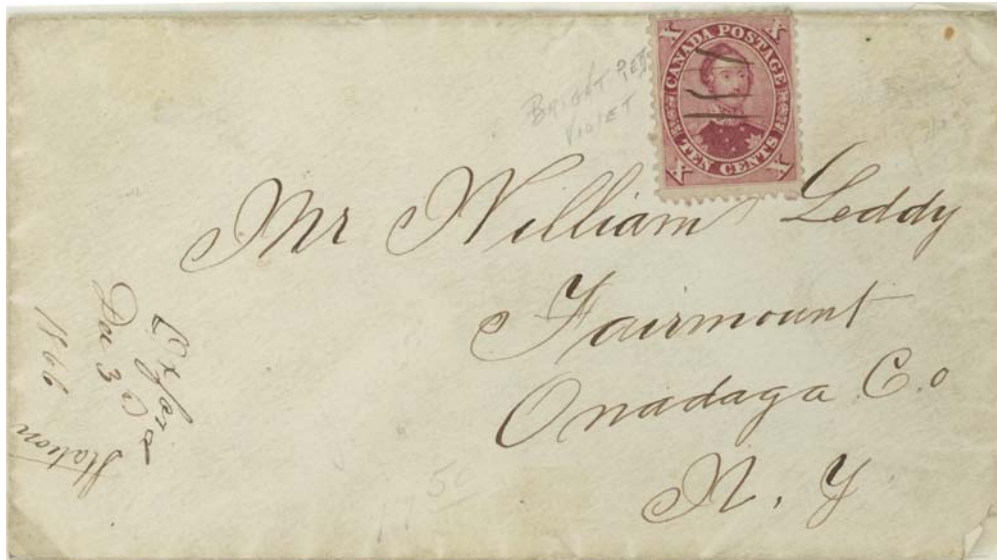 CANADA POSTAGE
TEN CENTS
X X
X X
BRIGHT RED
VIOLET
Mr William Leddy
Fairmount
Onadaga C.o
N. Y
Oxford
Station
Dec 3
1866
5c